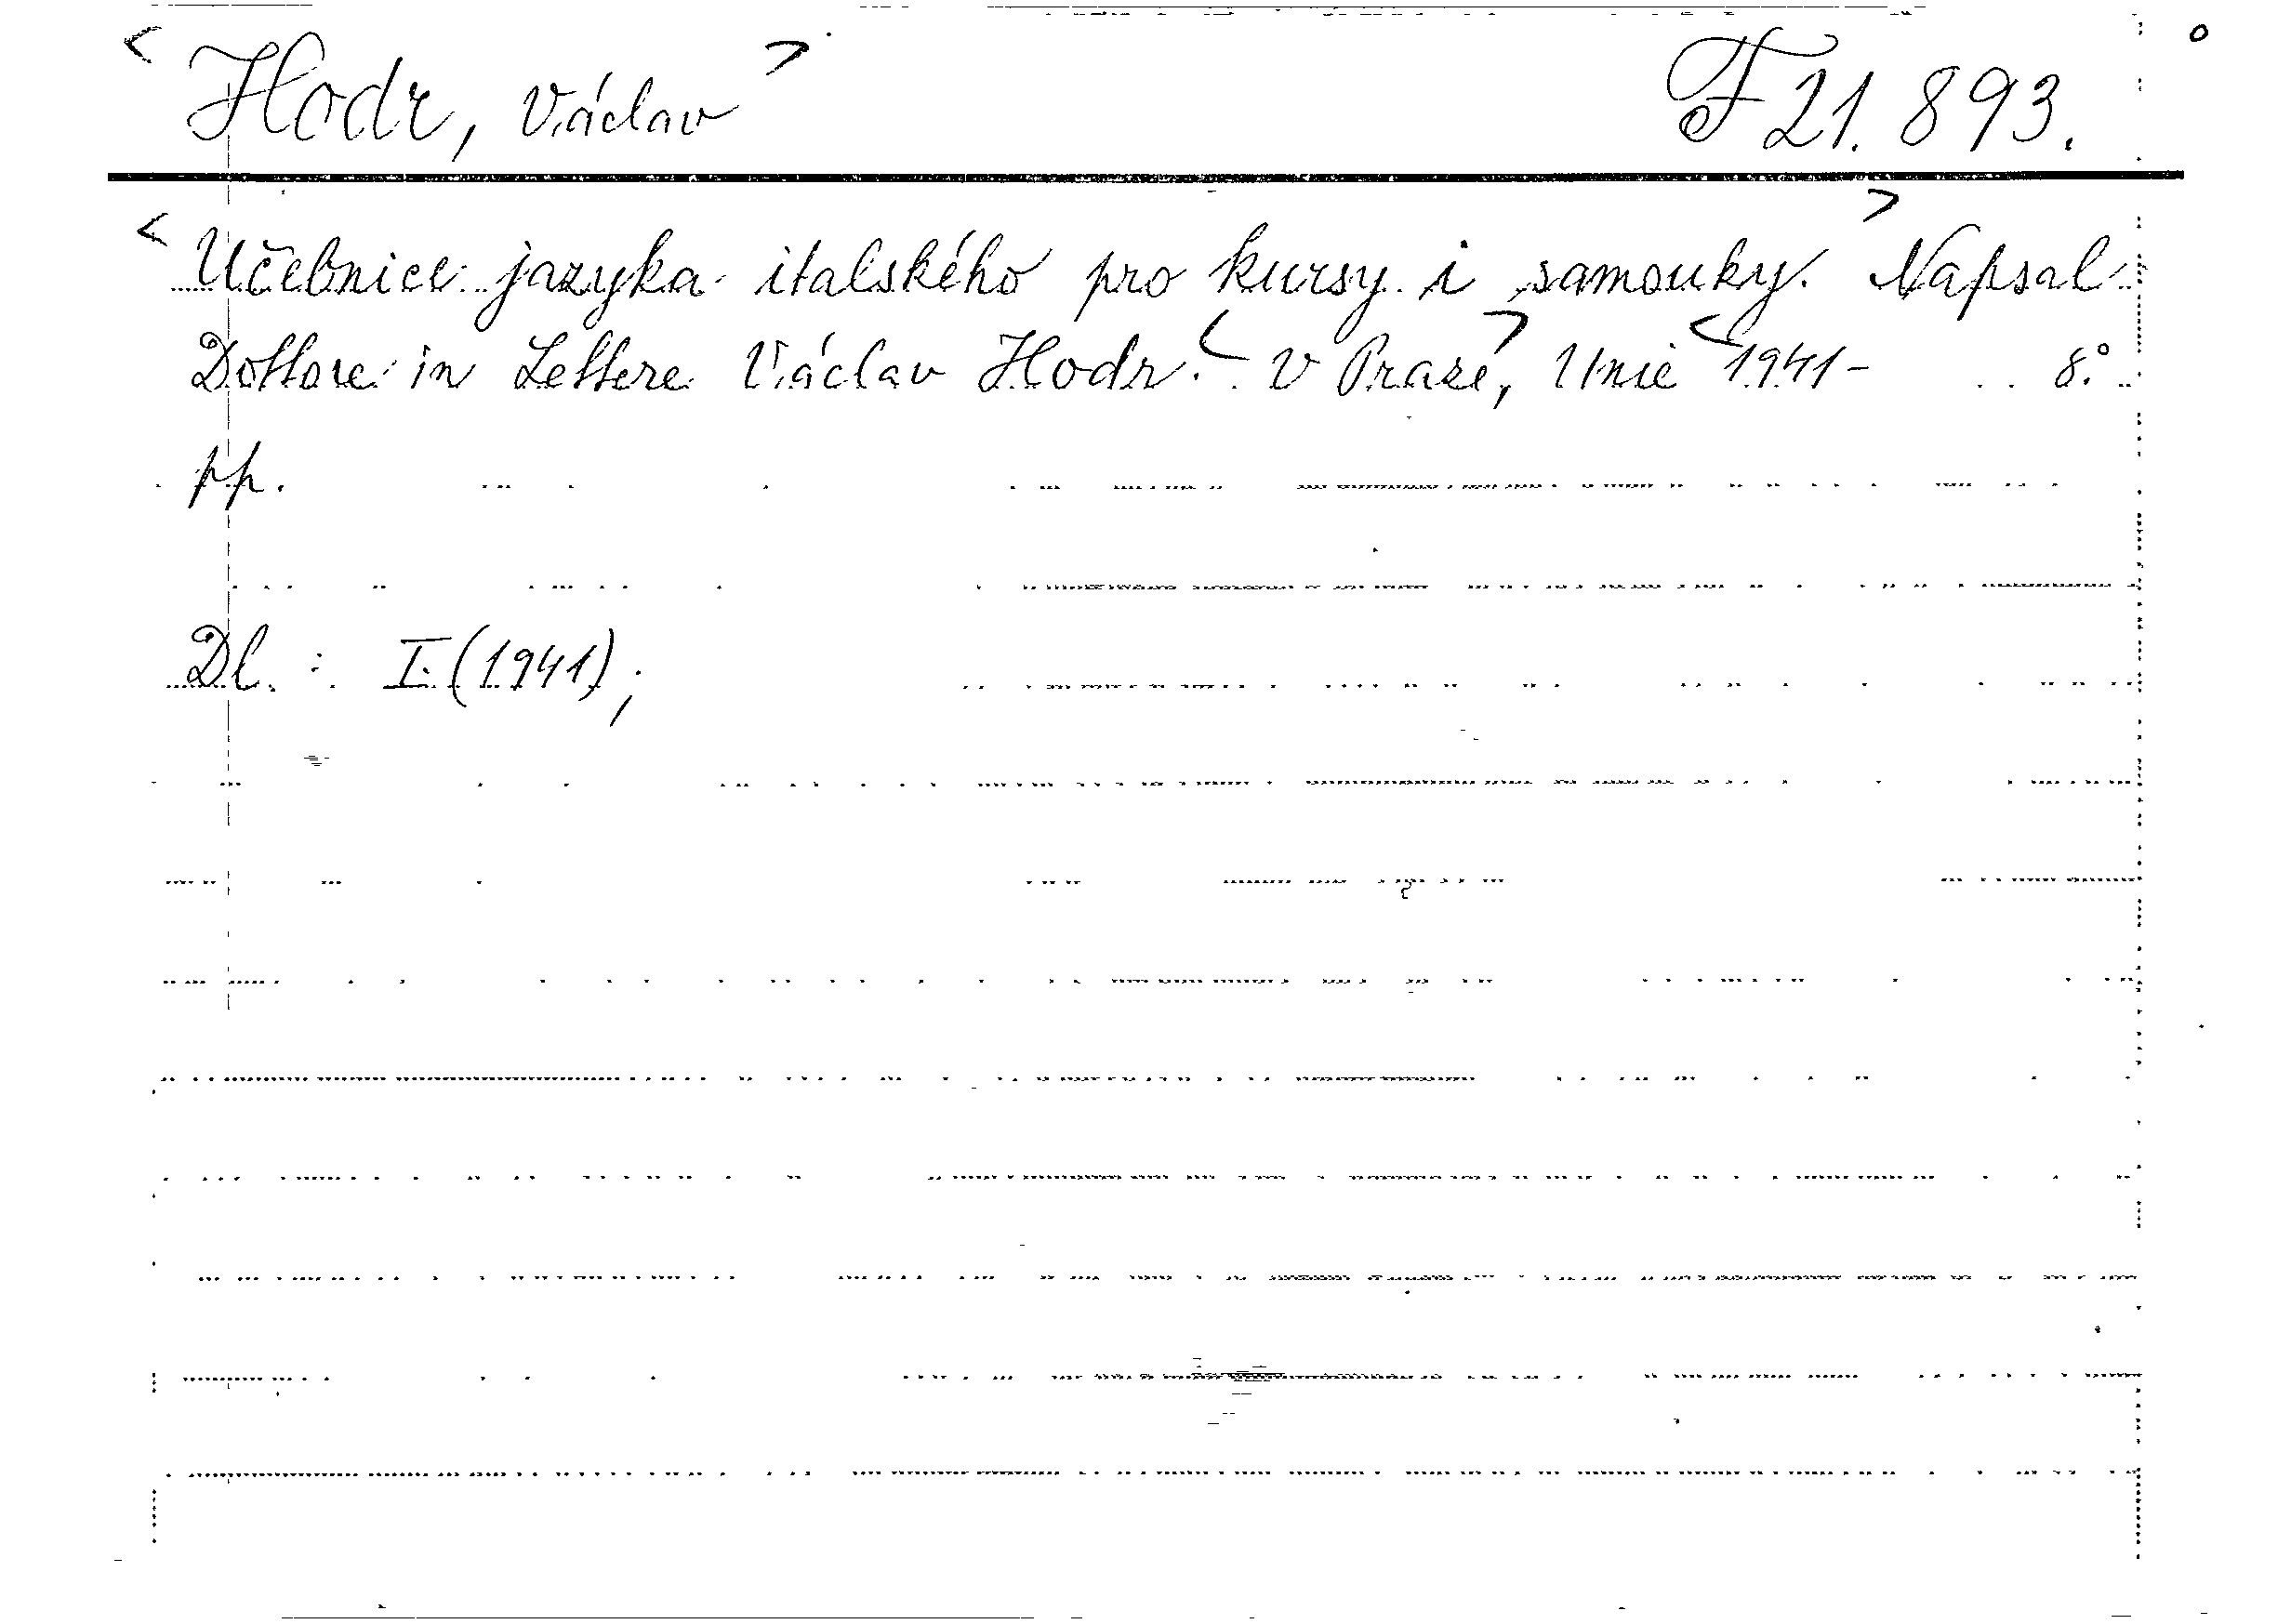 <Hodr, Václav> F 21.893.
<Učebnice jazyka italského pro kursy i samouky.> Napsal
Dottore in Lettere Václav Hodr. <V Praze>, Unie <1941- 8.°
pp.
Dl. : I. (1941);